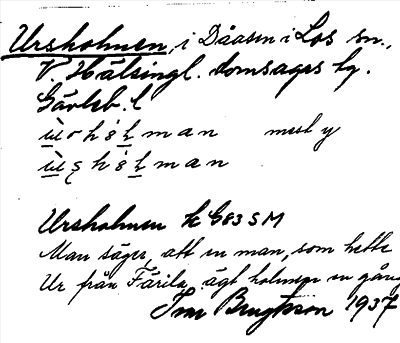 Ursholmen, i Dåasen i Los sn.,
V. Hälsingl. domsagas tg.
Gävleb. l
man
man
Ursholmen k G83 SM
Man säger, att en man, som hette
Ur från Färila, ägt holmen en gång
Ivar Bengtsson 1937